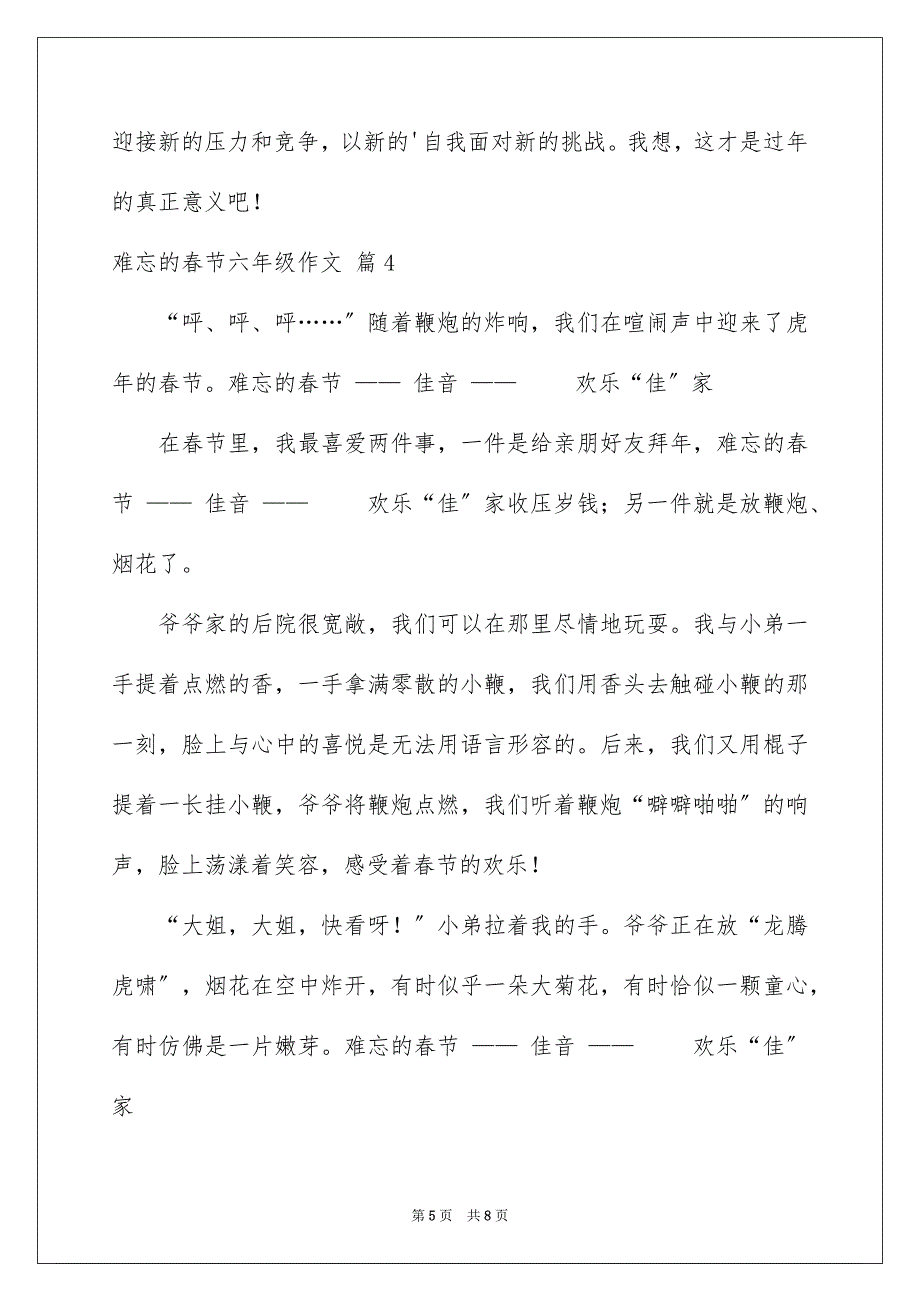 迎接新的压力和竞争，以新的'自我面对新的挑战。我想，这才是过年
的真正意义吧！
难忘的春节六年级作文 篇4
“呯、呯、呯……〞随着鞭炮的炸响，我们在喧闹声中迎来了虎
年的春节。难忘的春节 —— 佳音 —— 欢乐“佳〞家
在春节里，我最喜爱两件事，一件是给亲朋好友拜年，难忘的春
节 —— 佳音 —— 欢乐“佳〞家收压岁钱；另一件就是放鞭炮、
烟花了。
爷爷家的后院很宽敞，我们可以在那里尽情地玩耍。我与小弟一
手提着点燃的香，一手拿满零散的小鞭，我们用香头去触碰小鞭的那
一刻，脸上与心中的喜悦是无法用语言形容的。后来，我们又用棍子
提着一长挂小鞭，爷爷将鞭炮点燃，我们听着鞭炮“噼噼啪啪〞的响
声，脸上荡漾着笑容，感受着春节的欢乐！
“大姐，大姐，快看呀！〞小弟拉着我的手。爷爷正在放“龙腾
虎啸〞，烟花在空中炸开，有时似乎一朵大菊花，有时恰似一颗童心，
有时仿佛是一片嫩芽。难忘的春节 —— 佳音 —— 欢乐“佳〞
家
第5页 共8页